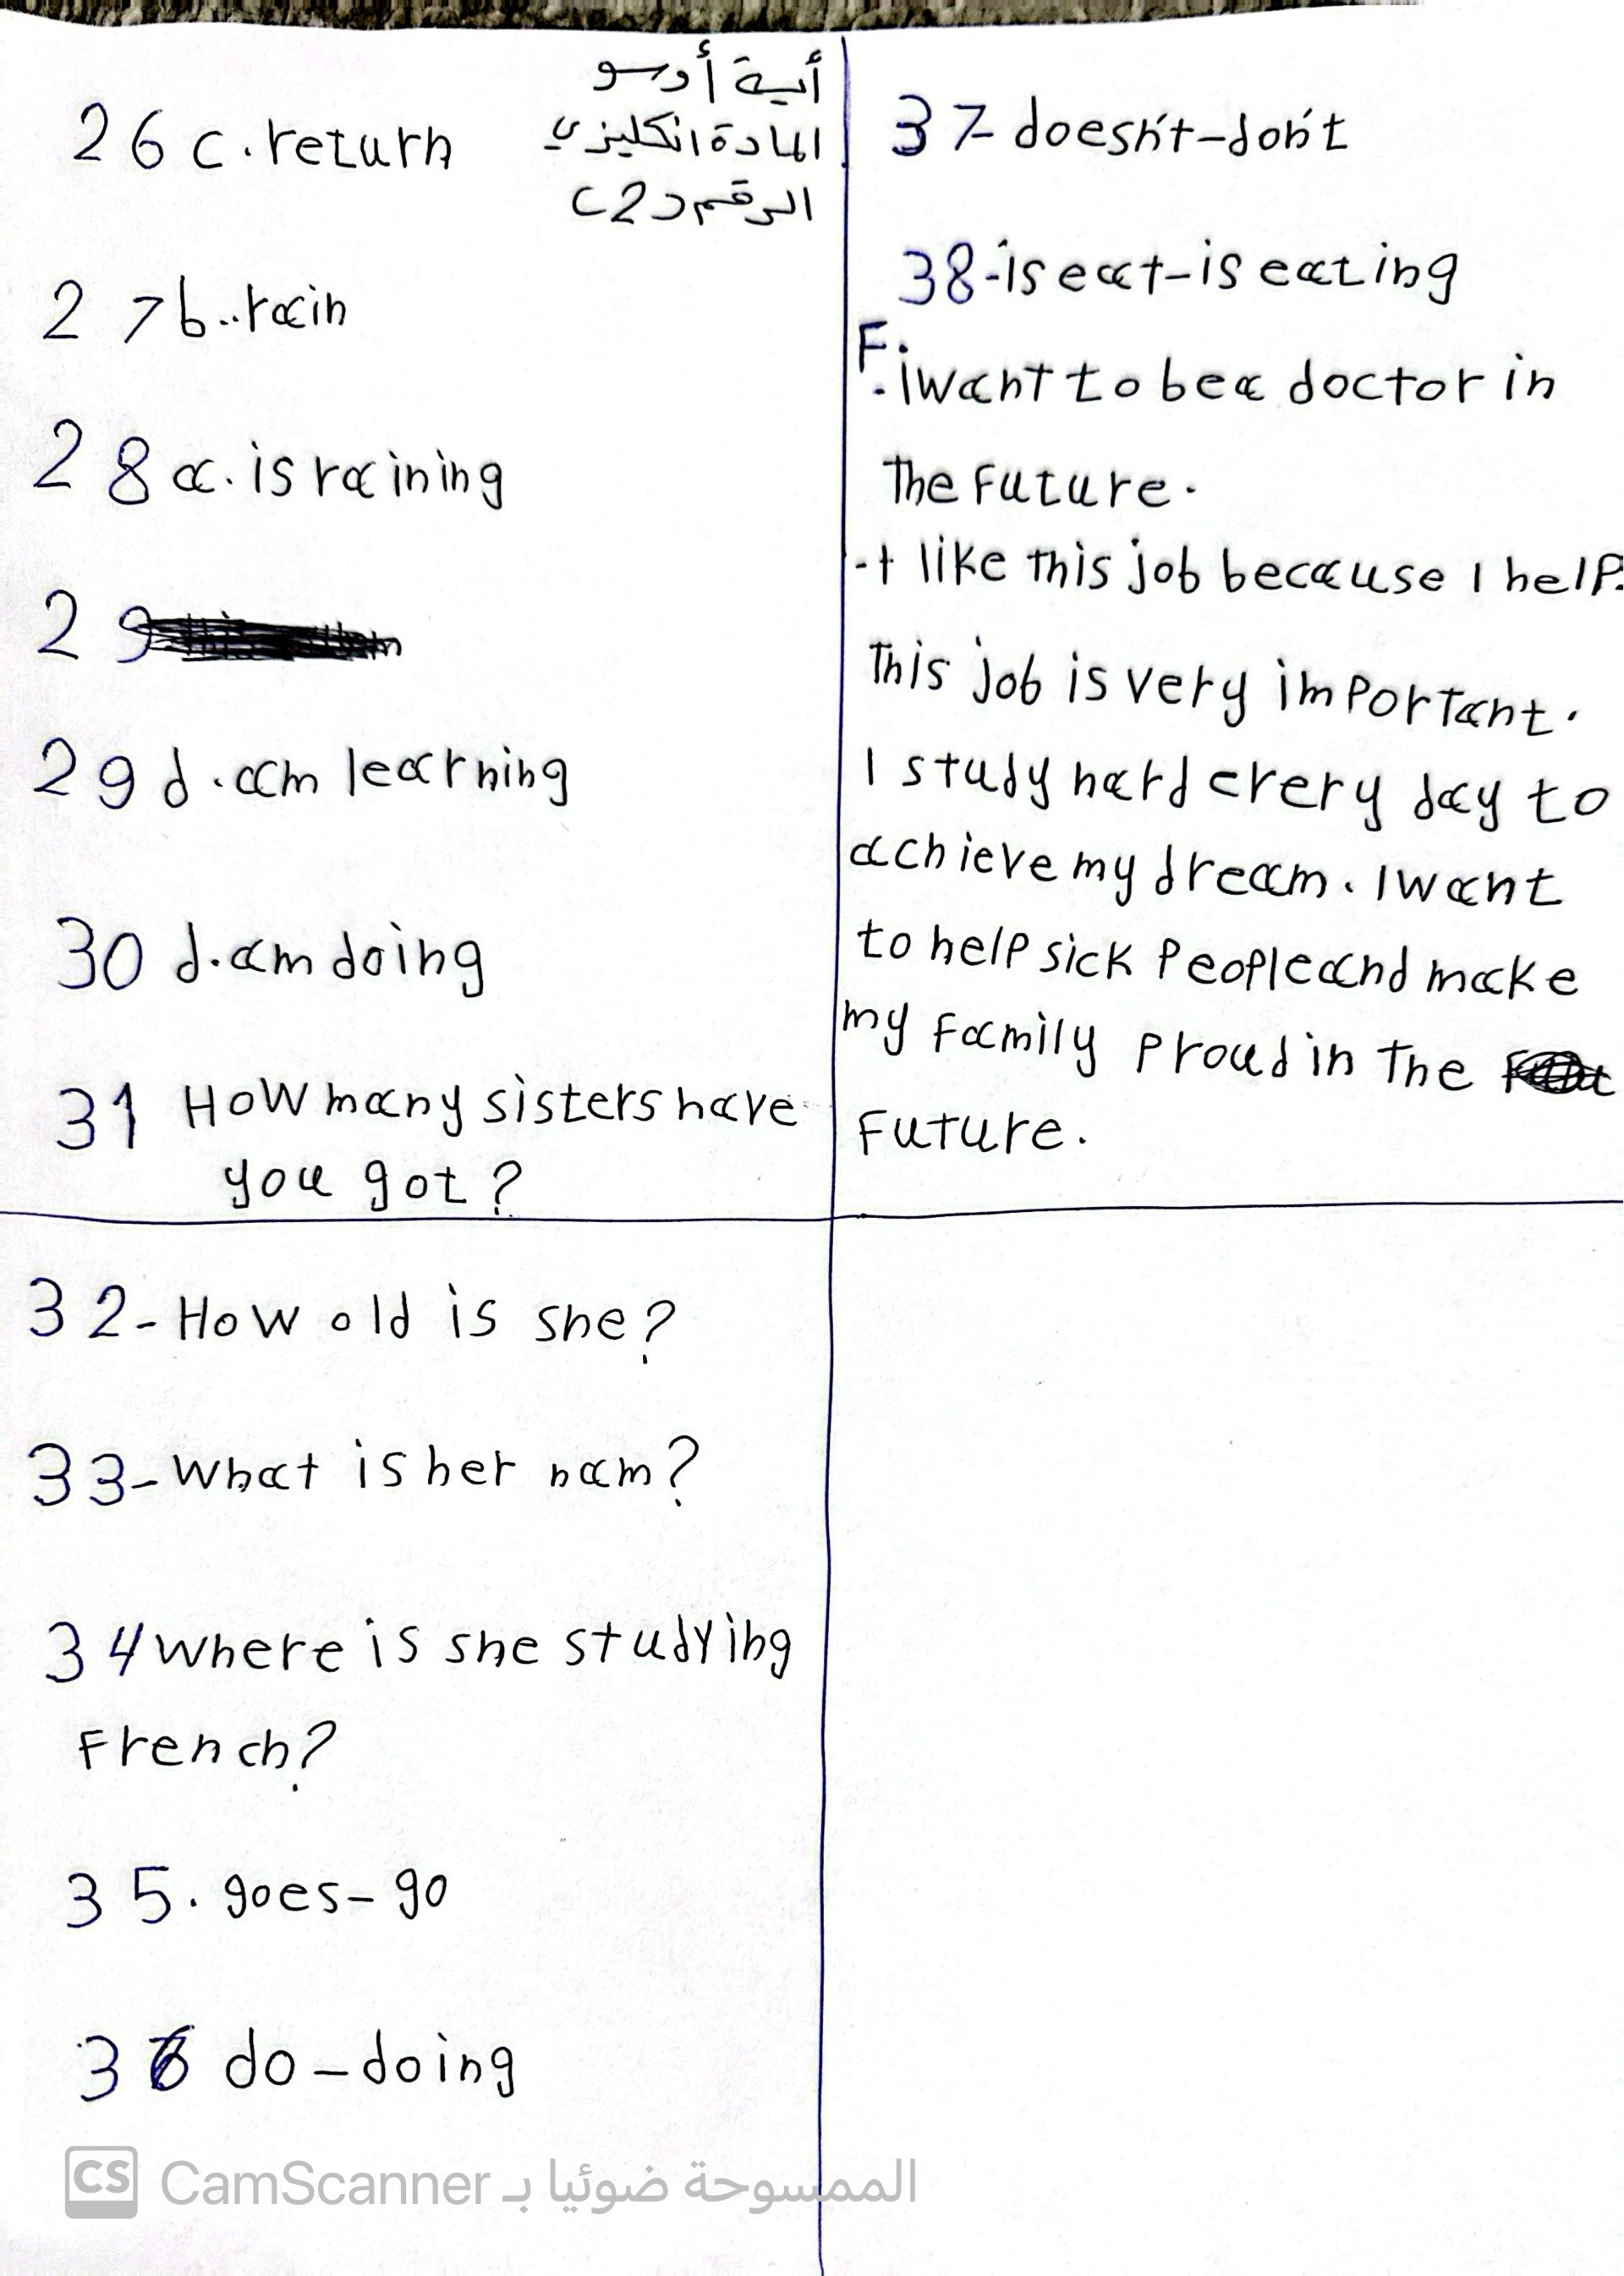 أية أوسو
المادة انكليزي
الرقم د2
26 c. return
27 b.. rain
28 a. is raining
29
29 d. am learning
30 d. am doing
31 How many sisters have
you got?
32- How old is she?
33- What is her nam?
34 where is she studying
French?
35. goes - go
36 do - doing
37- doesn't - don't
38- is eat - is eating
F. i want to be a doctor in
the future.
- I like this job because I help.
This job is very important.
I study hard every day to
achieve my dream. I want
to help sick people and make
my family proud in the
Future.
CS CamScanner الممسوحة ضوئيا بـ